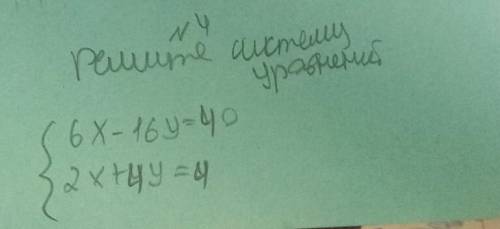 N 4
решите систему
уравнений
6x-16y=40
2x+4y=4